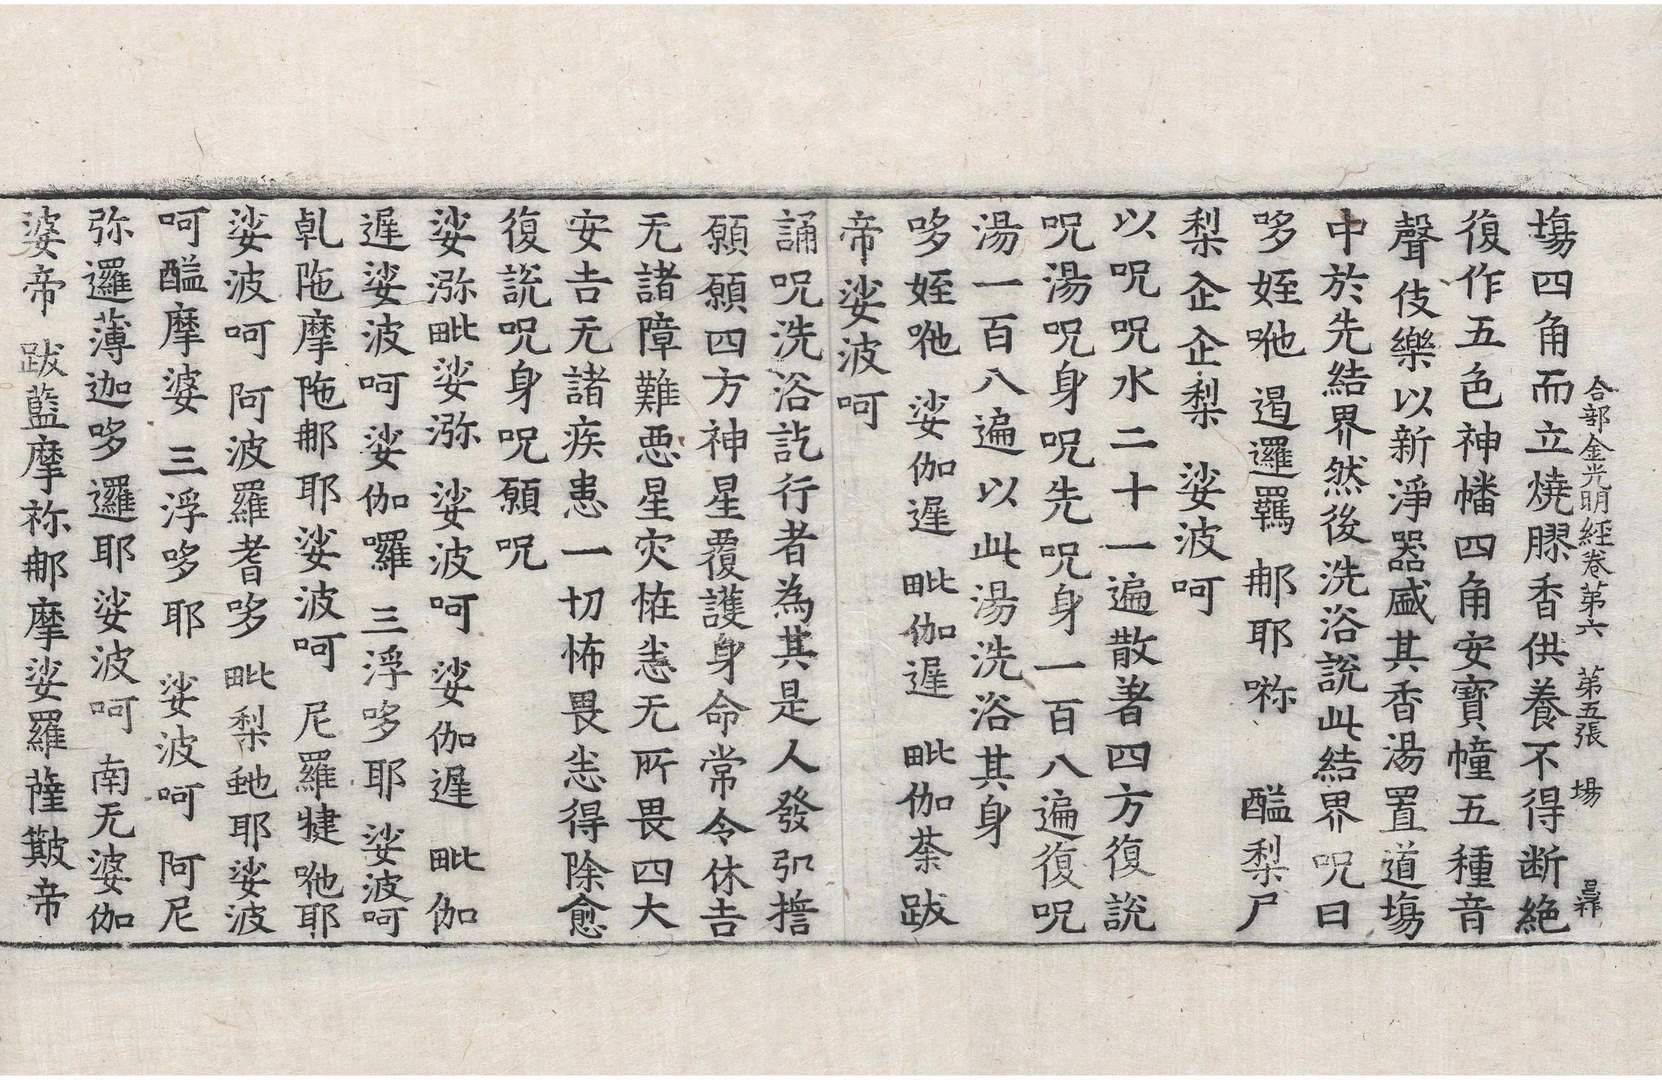 合部金光明經卷第六　第五張　場
塲四角而立燒膠香供養不得断絶
復作五色神幡四角安寶幢五種音
聲伎樂以新淨器盛其香湯置道塲
中於先結界然後洗浴說此結界呪曰
哆姪哋　遏邏羈　郍耶㗚　醯梨尸
梨企企梨　娑波呵
以呪呪水二十一遍散著四方復說
呪湯呪身呪先呪身一百八遍復呪
湯一百八遍以此湯洗浴其身
哆姪哋　娑伽遲　毗伽遲　毗伽荼跋
帝娑波呵
誦呪洗浴訖行者為其是人發弘誓
願願四方神星覆護身命常令休吉
无諸障難惡星灾恠恙无所畏四大
安吉无諸疾患一切怖畏恙得除愈
復說呪身呪願呪
娑㳽毗娑㳽　娑波呵　娑伽遲　毗伽
遲娑波呵　娑伽囉　三浮哆耶　娑波呵
乹陁摩陁郍耶娑波呵　尼羅揵哋耶
娑波呵　阿波羅耆哆　毗梨虵耶娑波
呵醯摩婆　三浮哆耶　娑波呵　阿尼
弥邏薄迦哆邏耶娑波呵　南无婆伽
婆帝　跋藍摩祢郍摩娑羅薩皾帝